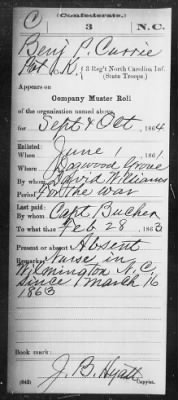 C
(Confederate.)
3 N.C.
Benj P. Currie
Pvt Co. K, 3 Reg't North Carolina Inf.
(State Troops.)
Appears on
Company Muster Roll
of the organization named above,
for Sept & Oct, 1864
Enlisted:
When June 1, 1861
Where Dogwood Grove
By whom David Williams
Period For the war
Last paid:
By whom Capt. Bucher
To what time Feb 28, 1863
Present or absent Absent
Remarks: Nurse in
Wilmington N.C.
since March 16
1863
Book mark:
J. B. Hyatt
(642) Copyist.